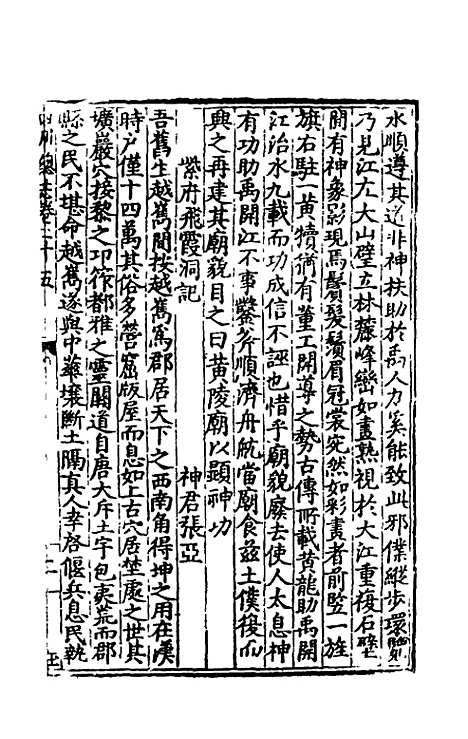 水順遵其道非神扶助於禹人力奚能致此邪僕縱步環覽
乃見江左大山壁立林麓峰巒如畫熟視於大江重複石壁
間有神象影現焉鬢髮鬚眉冠裳宛然如彩畫者前竪一旌
旗右駐一黃犢猶有董工開導之勢古傳所載黃龍助禹開
江治水九載而功成信不誣也惜乎廟貌廢去使人太息神
有功助禹開江不事鑿斧順濟舟航當廟食茲土僕復而
興之再建其廟貌目之曰黃陵廟以顯神功
紫府飛霞洞記 神君張亞
吾舊生越嶲間按越嶲寓郡居天下之西南角得坤之用在漢
時戶僅十四萬其俗多營窟版屋而息如上古穴居埜處之世其
壙巖穴接黎之邛筰都雅之靈關道自唐大斥土宇包夷荒而郡
縣之民不堪命越嶲遂與中華壤斷土隔真人孝啓偃兵息民執
四川總志卷二十五